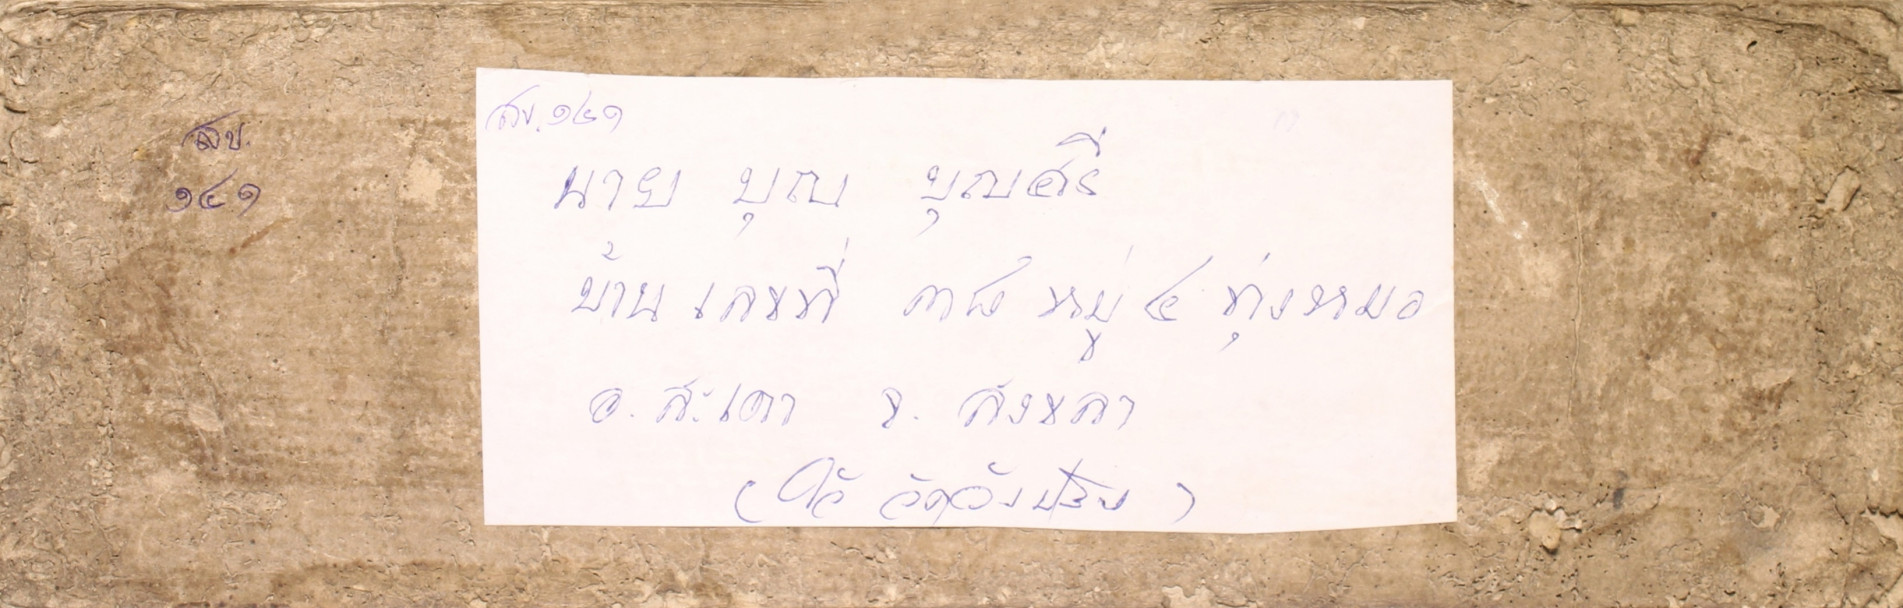 สข.
๑๔๑
สข.๑๔๑
นาย บุญ บุญศรี
บ้านเลขที่ ๓๘ หมู่ ๔ ทุ่งหมอ
อ. สะเดา จ. สงขลา
วัดวังปริง